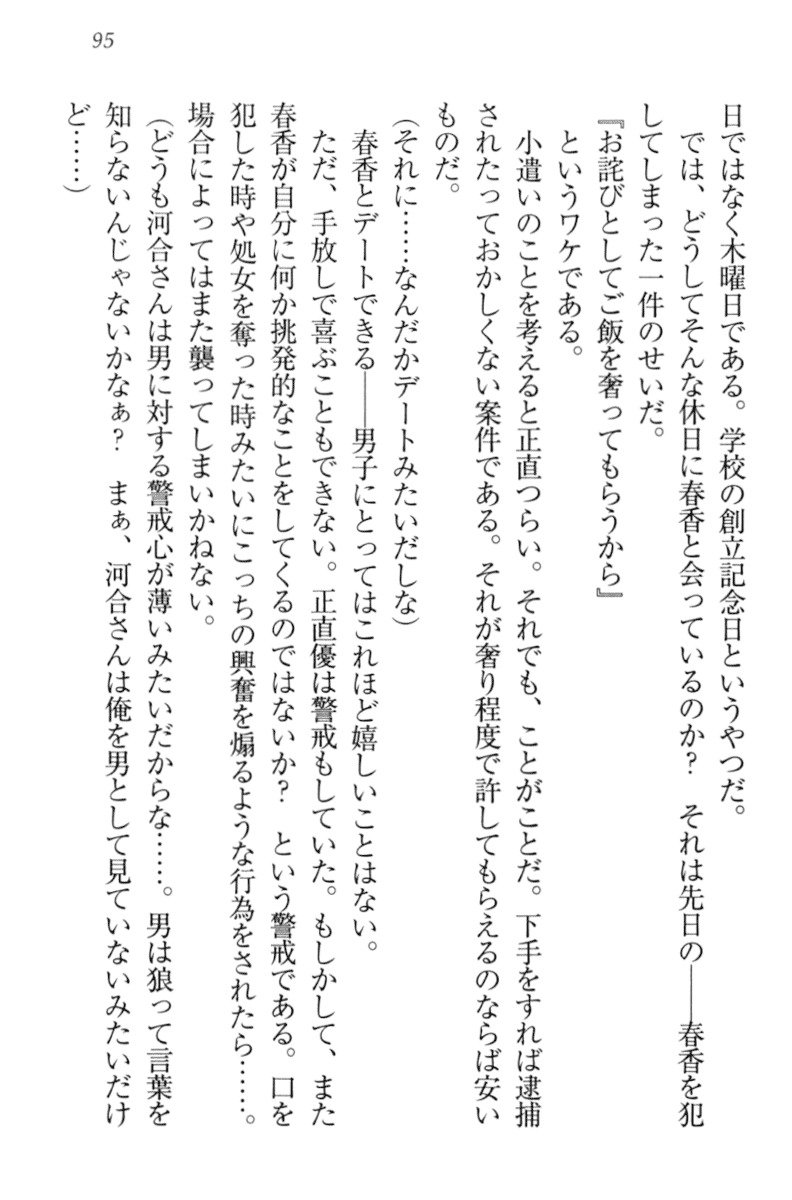 95
日ではなく木曜日である。学校の創立記念日というやつだ。
では、どうしてそんな休日に春香と会っているのか？　それは先日の――春香を犯
してしまった一件のせいだ。
『お詫びとしてご飯を奢ってもらうから』
というワケである。
小遣いのことを考えると正直つらい。それでも、ことがことだ。下手をすれば逮捕
されたっておかしくない案件である。それが奢り程度で許してもらえるのならば安い
ものだ。
（それに……なんだかデートみたいだしな）
春香とデートできる――男子にとってはこれほど嬉しいことはない。
ただ、手放しで喜ぶこともできない。正直優は警戒もしていた。もしかして、また
春香が自分に何か挑発的なことをしてくるのではないか？　という警戒である。口を
犯した時や処女を奪った時みたいにこっちの興奮を煽るような行為をされたら……。
場合によってはまた襲ってしまいかねない。
（どうも河合さんは男に対する警戒心が薄いみたいだからな……。男は狼って言葉を
知らないんじゃないかなぁ？　まぁ、河合さんは俺を男として見ていないみたいだけ
ど……）